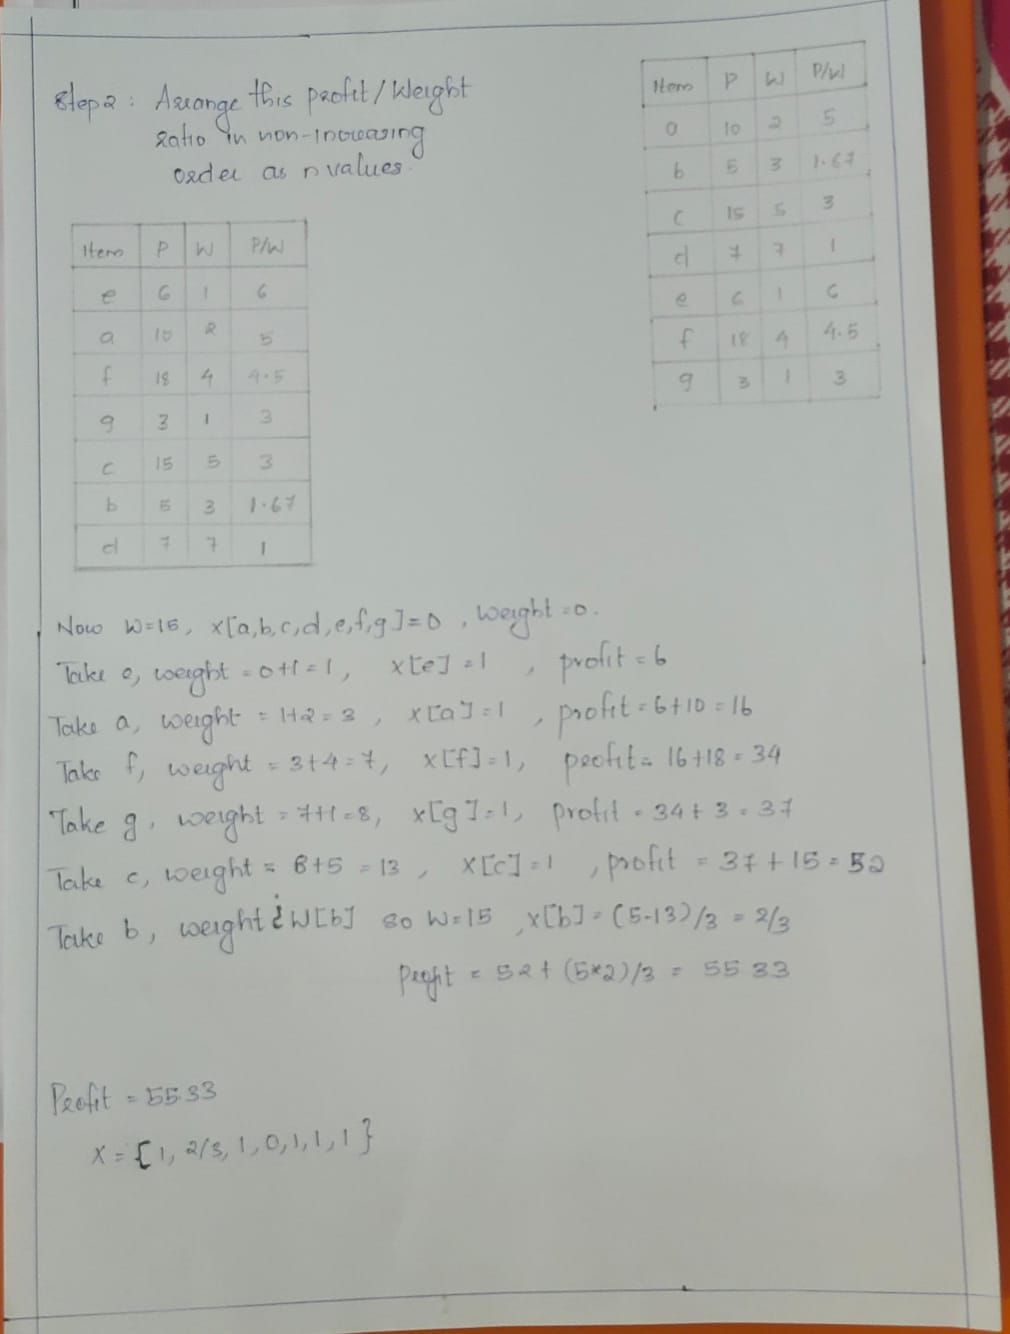 Step 2: Arrange this profit/Weight
ratio in non-increasing
order as n values.
Item P W P/W
e 6 1 6
a 10 2 5
f 18 4 4.5
g 3 1 3
c 15 5 3
b 5 3 1.67
d 7 7 1
Item P W P/W
a 10 2 5
b 5 3 1.67
c 15 5 3
d 7 7 1
e 6 1 6
f 18 4 4.5
g 3 1 3
Now W=15, x[a,b,c,d,e,f,g]=0, weight=0.
Take e, weight = 0+1=1, x[e]=1, profit=6
Take a, weight = 1+2=3, x[a]=1, profit=6+10=16
Take f, weight = 3+4=7, x[f]=1, profit= 16+18=34
Take g, weight = 7+1=8, x[g]=1, profit = 34+3=37
Take c, weight = 8+5=13, x[c]=1, profit = 37+15=52
Take b, weight ¿ W[b] so W=15, x[b]=(5-13)/3 = 2/3
Profit = 52+(5*2)/3 = 55 33
Profit = 55.33
X={1, 2/3, 1,0,1,1,1}